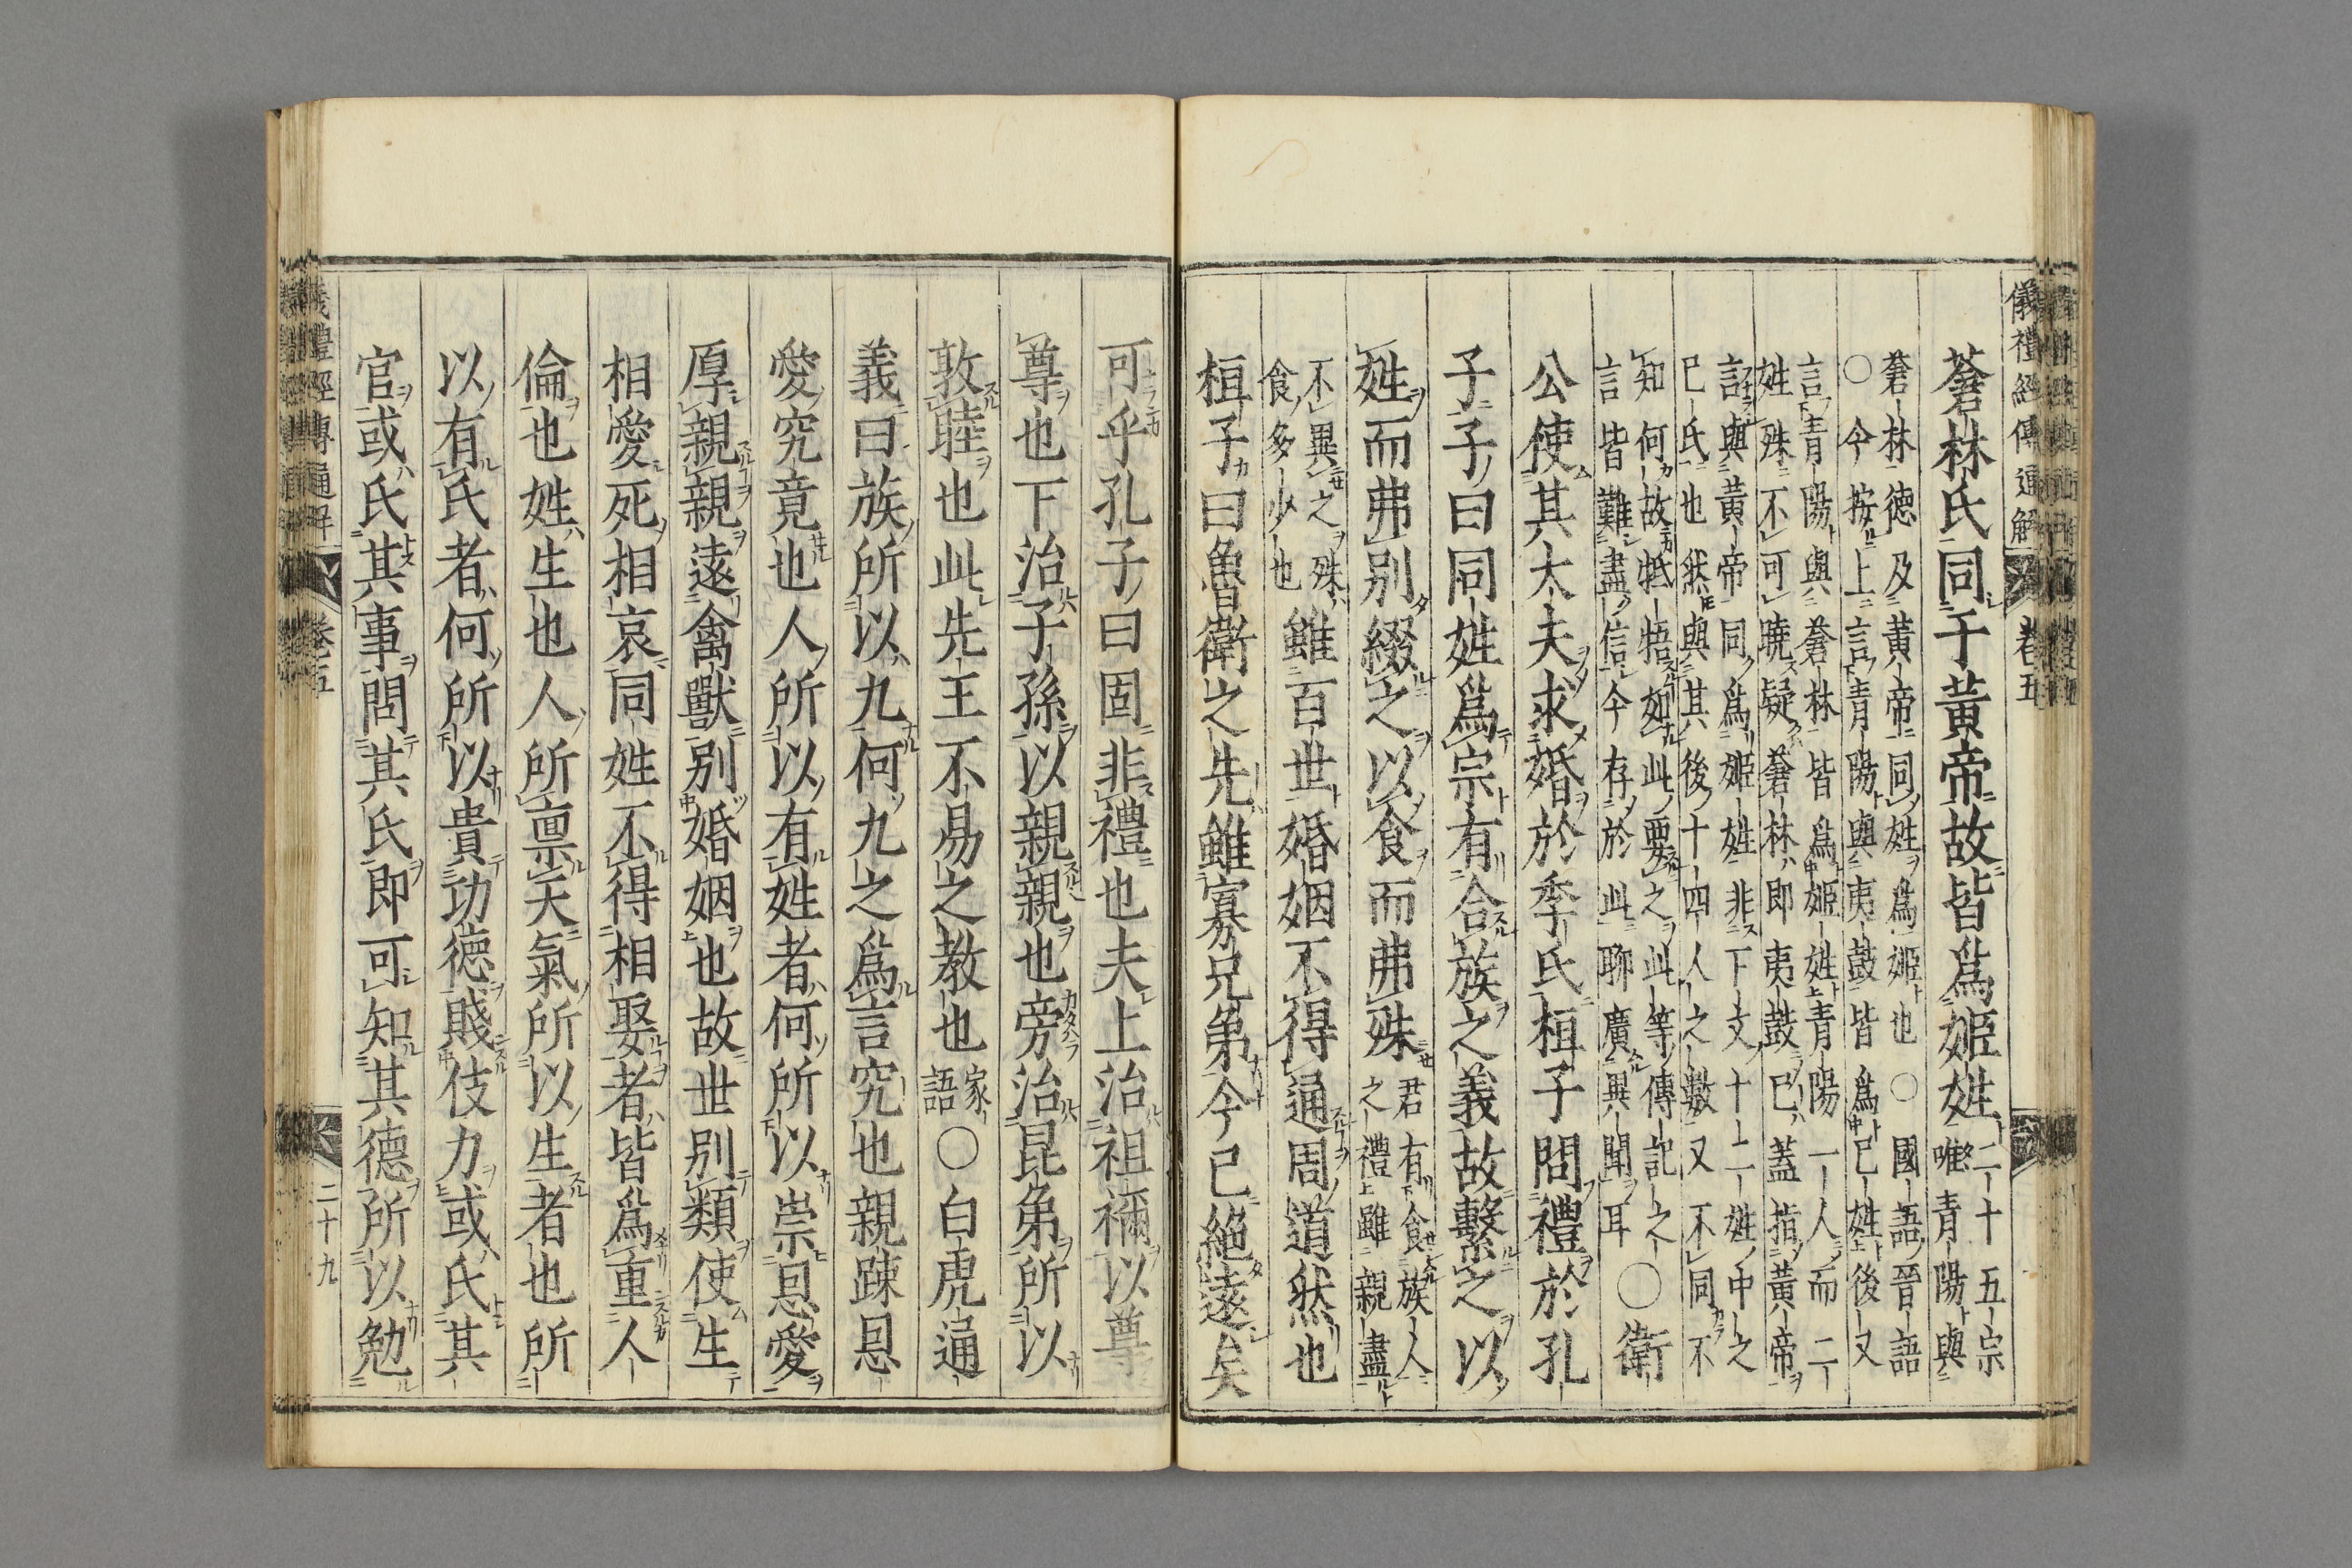 儀禮經傳通解 卷五
蒼林氏同于黃帝故皆爲姬姓二十五宗
唯青陽與
蒼林德及黃帝同姓爲姬也○國語晉語
○今按上言青陽與夷鼓皆爲已姓後又
言青陽與蒼林皆爲姬姓青陽一人而二
姓殊不可曉疑蒼林即夷鼓已蓋指黃帝
言與黃帝同爲姬姓非下文十二姓中之
已氏也然與其後十四人之數又不同不
知何故牴牾如此要之此等傳記之
言皆難盡信今存於此聊廣異聞耳○衛
公使其大夫求婚於季氏桓子問禮於孔
子子曰同姓爲宗有合族之義故繫之以
姓而弗別綴之以食而弗殊君有食族人
之禮雖親盡
不異之殊
食多少也雖百世婚姻不得通周道然也
桓子曰魯衛之先雖寡兄弟今已絕遠矣
可乎孔子曰固非禮也夫上治祖禰以尊
尊也下治子孫以親親也旁治昆弟所以
敦睦也此先王不易之教也家語○白虎通
義曰族所以九何九之爲言究也親踈恩
愛究竟也人所以有姓者何所以崇恩愛
厚親親遠禽獸別婚姻也故世別類使生
相愛死相哀同姓不得相娶者皆爲重人
倫也姓生也人所稟天氣所以生者也所
以有氏者何所以貴功德賤伎力或氏其
官或氏其事聞其氏即可知其德所以勉
儀禮經傳通解 卷五 二十九